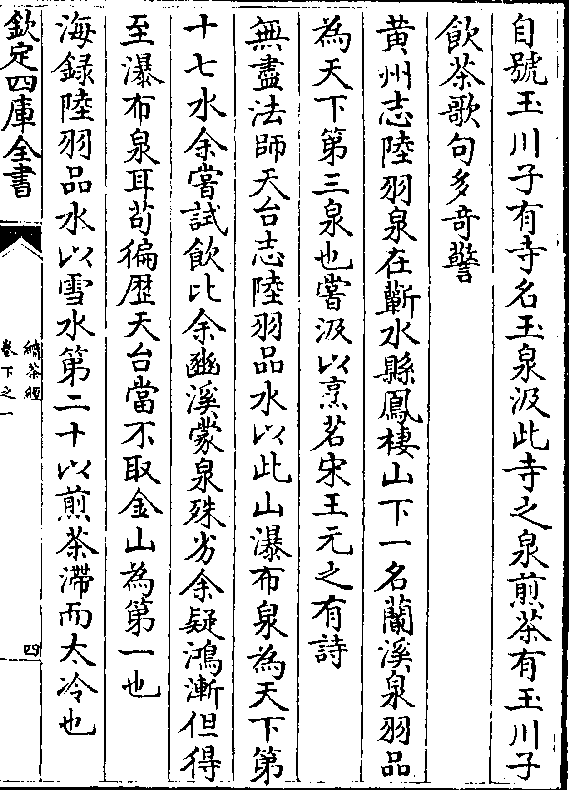 自號玉川子有寺名玉泉汲此寺之泉煎茶有玉川子
飲茶歌句多奇警
黄州志陸羽泉在蘄水縣鳳棲山下一名蘭溪泉羽品
為天下第三泉也嘗汲以烹茗宋王元之有詩
無盡法師天台志陸羽品水以此山瀑布泉為天下第
十七水余嘗試飲比余豳溪蒙泉殊劣余疑鴻漸但得
至瀑布泉耳茍徧歴天台當不取金山為第一也
海録陸羽品水以雪水第二十以煎茶滯而太冷也
欽定四庫全書
續茶經
卷下之一
四